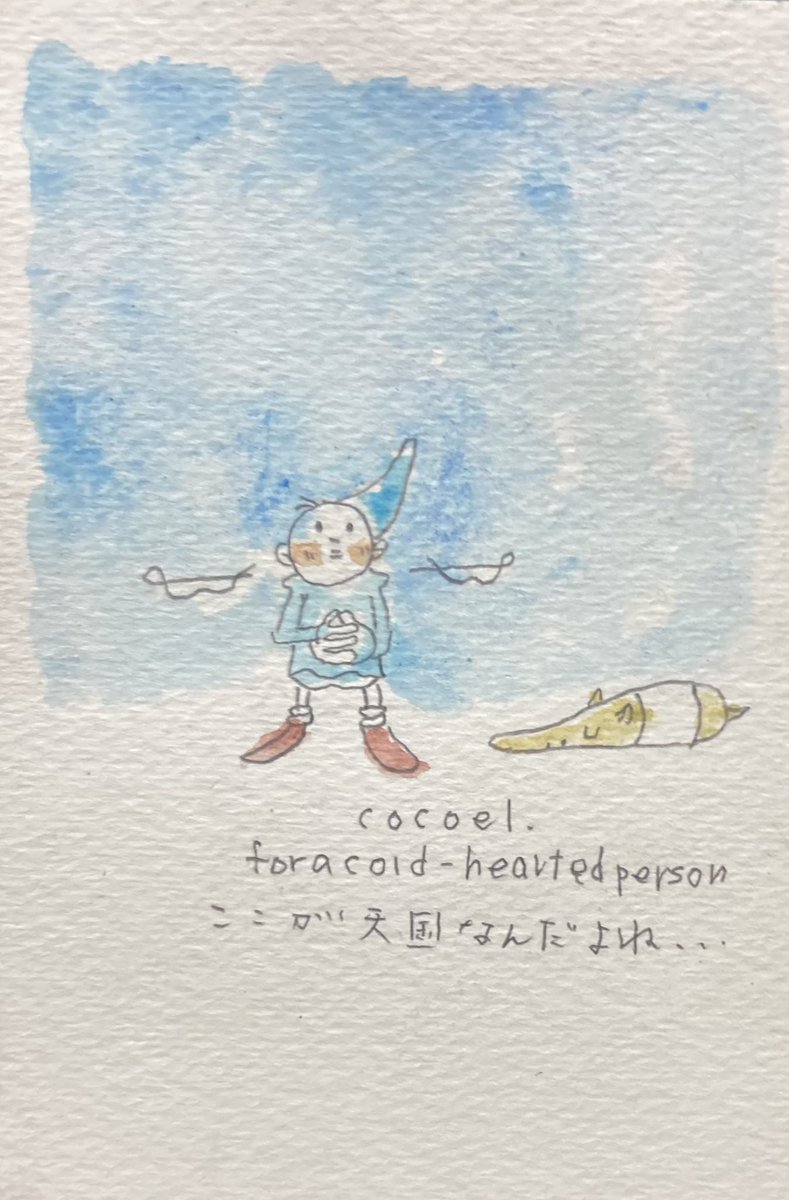 cocoel.
for a cold-hearted person
ここが天国なんだよね...